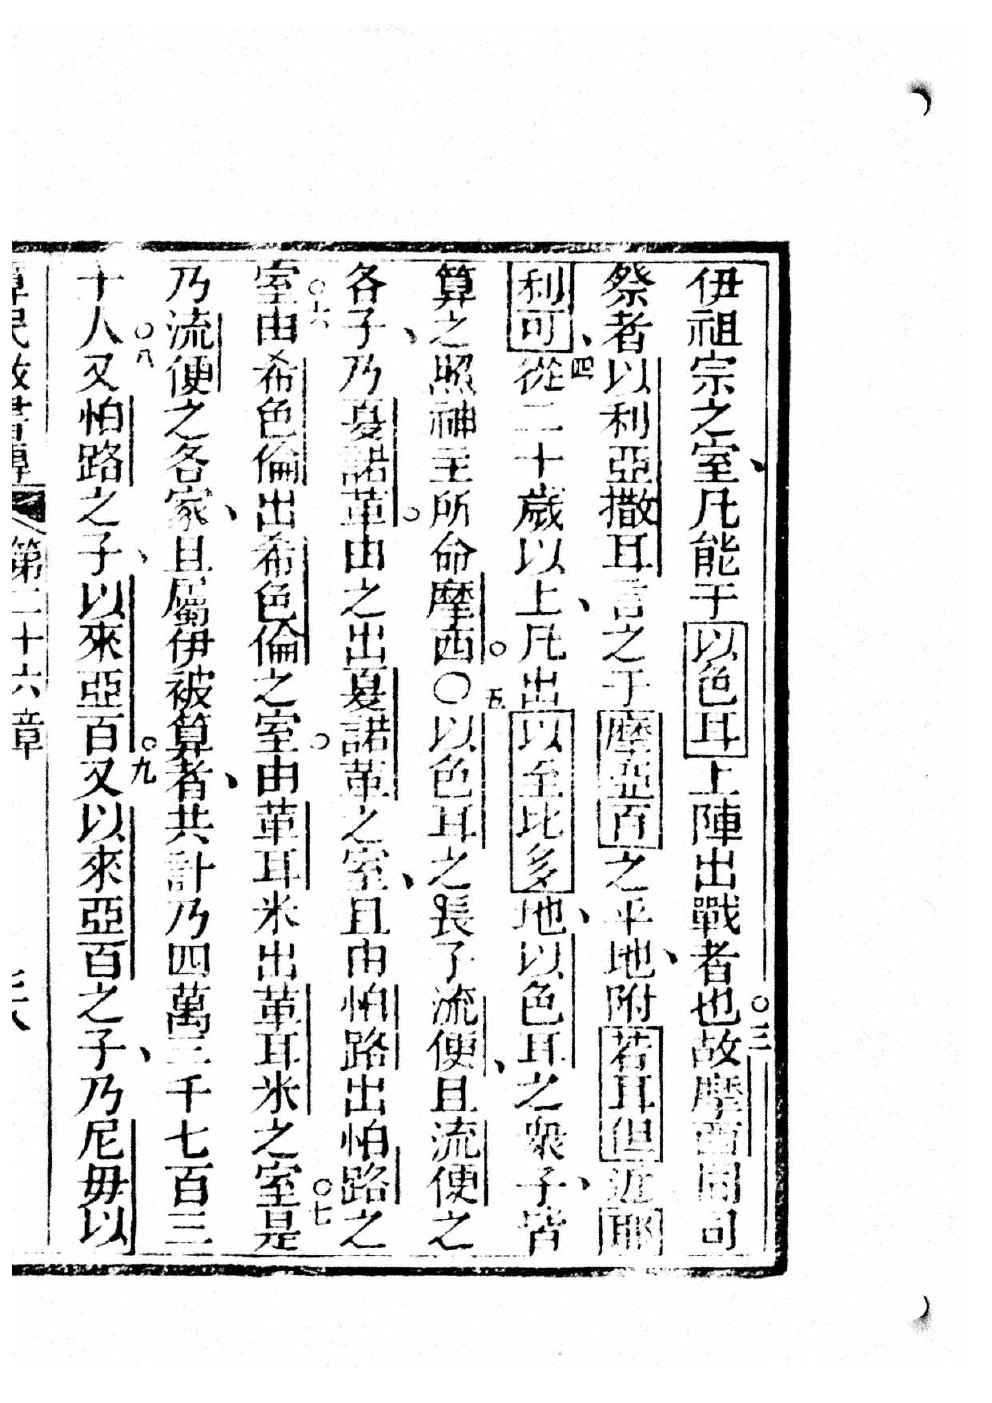 伊祖宗之室、凡能于以色耳上陣出戰者也。三故摩西同司
祭者以利亞撒耳言之于摩亞百之平地、附若耳但近耶
利可、四從二十歲以上、凡出以至比多地、以色耳之衆子、皆
算之照神主所命摩西。○五以色耳之長子流便、且流便之
各子、乃戛諾革。由之出戛諾革之室、且由怕路出怕路之
室。六由希色倫出希色倫之室。由葷耳米出葷耳米之室。七是
乃流便之各家、且屬伊被算者、共計乃四萬三千七百三
十人。八又怕路之子、以來亞百。九又以來亞百之子、乃尼毋以
算民數書傳 第二十六章